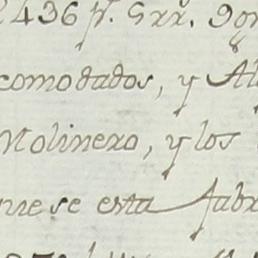 2436 p.r Grr. Don
comodados, y Al
Molinero, y los
nuese esta fabr